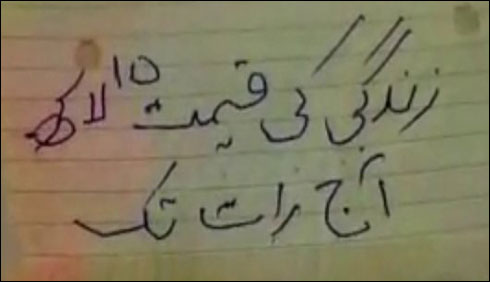 زندگی کی قیمت ۱۵ لاکھ
آج رات تک